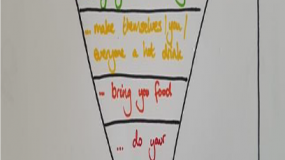 - make themselves/you/
everyone a hot drink
- bring you food
... do your